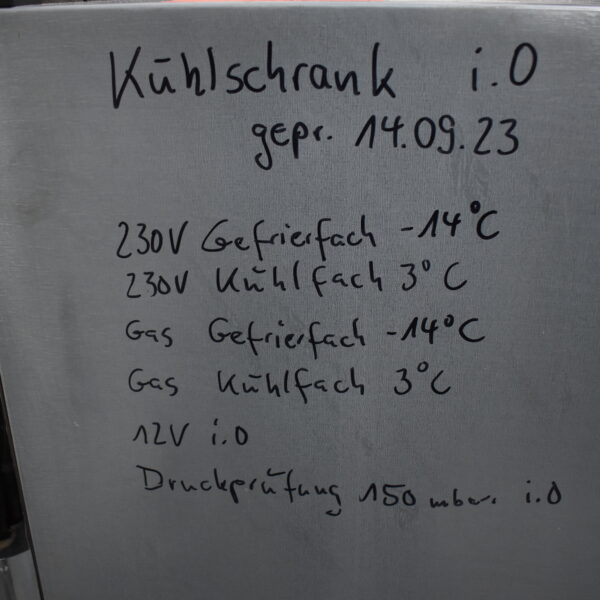 Kühlschrank i.O
gepr. 14.09.23
230V Gefrierfach -14°C
230V Kühlfach 3°C
Gas Gefrierfach -14°C
Gas Kühlfach 3°C
12V i.O
Druckprüfung 150 mbar i.O